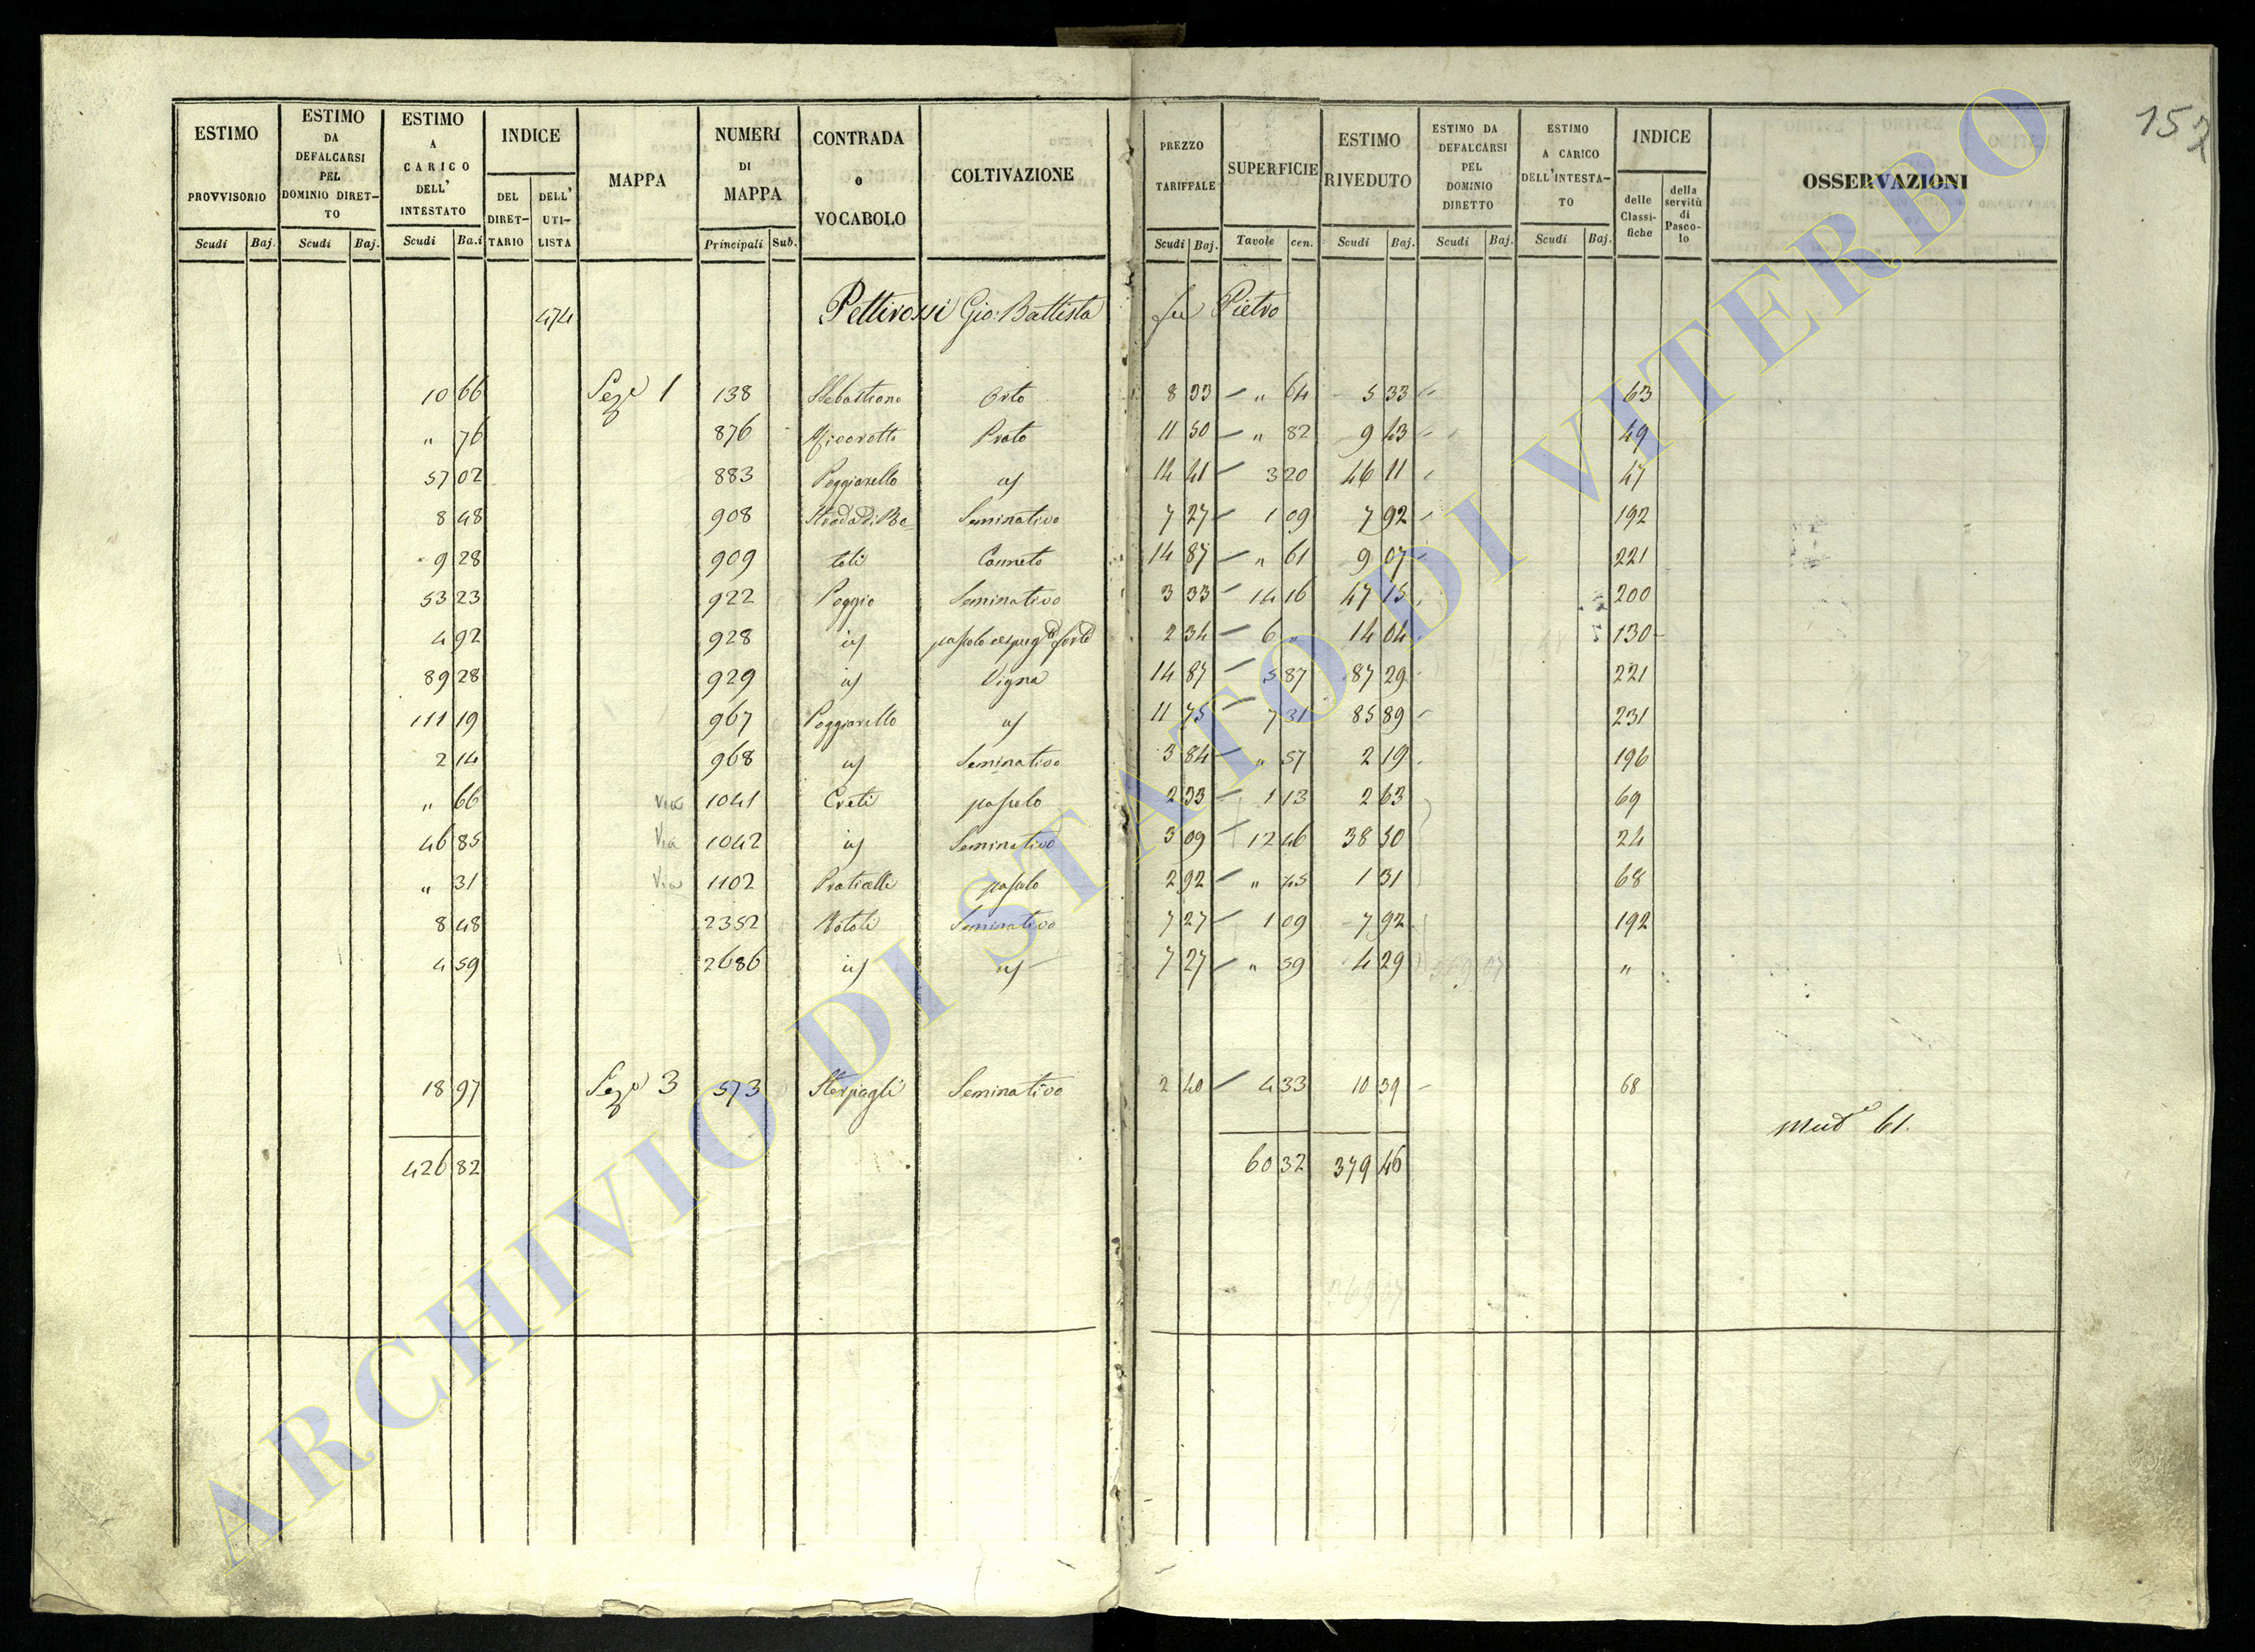 157
ESTIMO PROVVISORIO Scudi Baj.
ESTIMO DA DEFALCARSI PEL DOMINIO DIRETTO Scudi Baj.
ESTIMO A CARICO DELL' INTESTATO Scudi Ba.i
INDICE DEL DIRETTARIO DELL' UTILISTA
MAPPA
NUMERI DI MAPPA Principali Sub.
CONTRADA o VOCABOLO
COLTIVAZIONE
PREZZO TARIFFALE Scudi Baj.
SUPERFICIE Tavole cen.
ESTIMO RIVEDUTO Scudi Baj.
ESTIMO DA DEFALCARSI PEL DOMINIO DIRETTO Scudi Baj.
ESTIMO A CARICO DELL'INTESTATO Scudi Baj.
INDICE delle Classifiche della servitù di Pascolo
OSSERVAZIONI
474 Pettirossi Gio: Battista fu Pietro
10 66 Sez.e 1 138 S Sebastiano Orto 8 33 " 64 5 33 63
" 76 876 Prato 11 50 " 82 9 43 49
57 02 883 Poggiarello id 14 41 3 20 46 11 47
8 48 908 Strada di Bo= Seminativo 7 27 1 09 7 92 192
9 28 909 toli Canneto 14 87 " 61 9 07 221
53 23 922 Poggio Seminativo 3 33 14 16 47 15 200
4 92 928 id 2 34 6 " 14 04 130
89 28 929 id Vigna 14 87 5 87 87 29 221
111 19 967 Poggiarello id 11 75 7 31 85 89 231
2 14 968 id Seminativo 3 84 " 57 2 19 196
" 66 Via 1041 Creti pascolo 2 33 1 13 2 63 69
46 85 Via 1042 id Seminativo 3 09 12 46 38 50 24
" 31 Via 1102 Praticelli pascolo 2 92 " 45 1 31 68
8 48 2352 Botoli Seminativo 7 27 1 09 7 92 192
4 59 2686 id id 7 27 " 59 4 29 "
18 97 Sez.e 3 573 Sterpagli Seminativo 2 40 4 33 10 39 68
mud.e 61.
426 82 60 32 379 46
369 07
ARCHIVIO DI STATO DI VITERBO